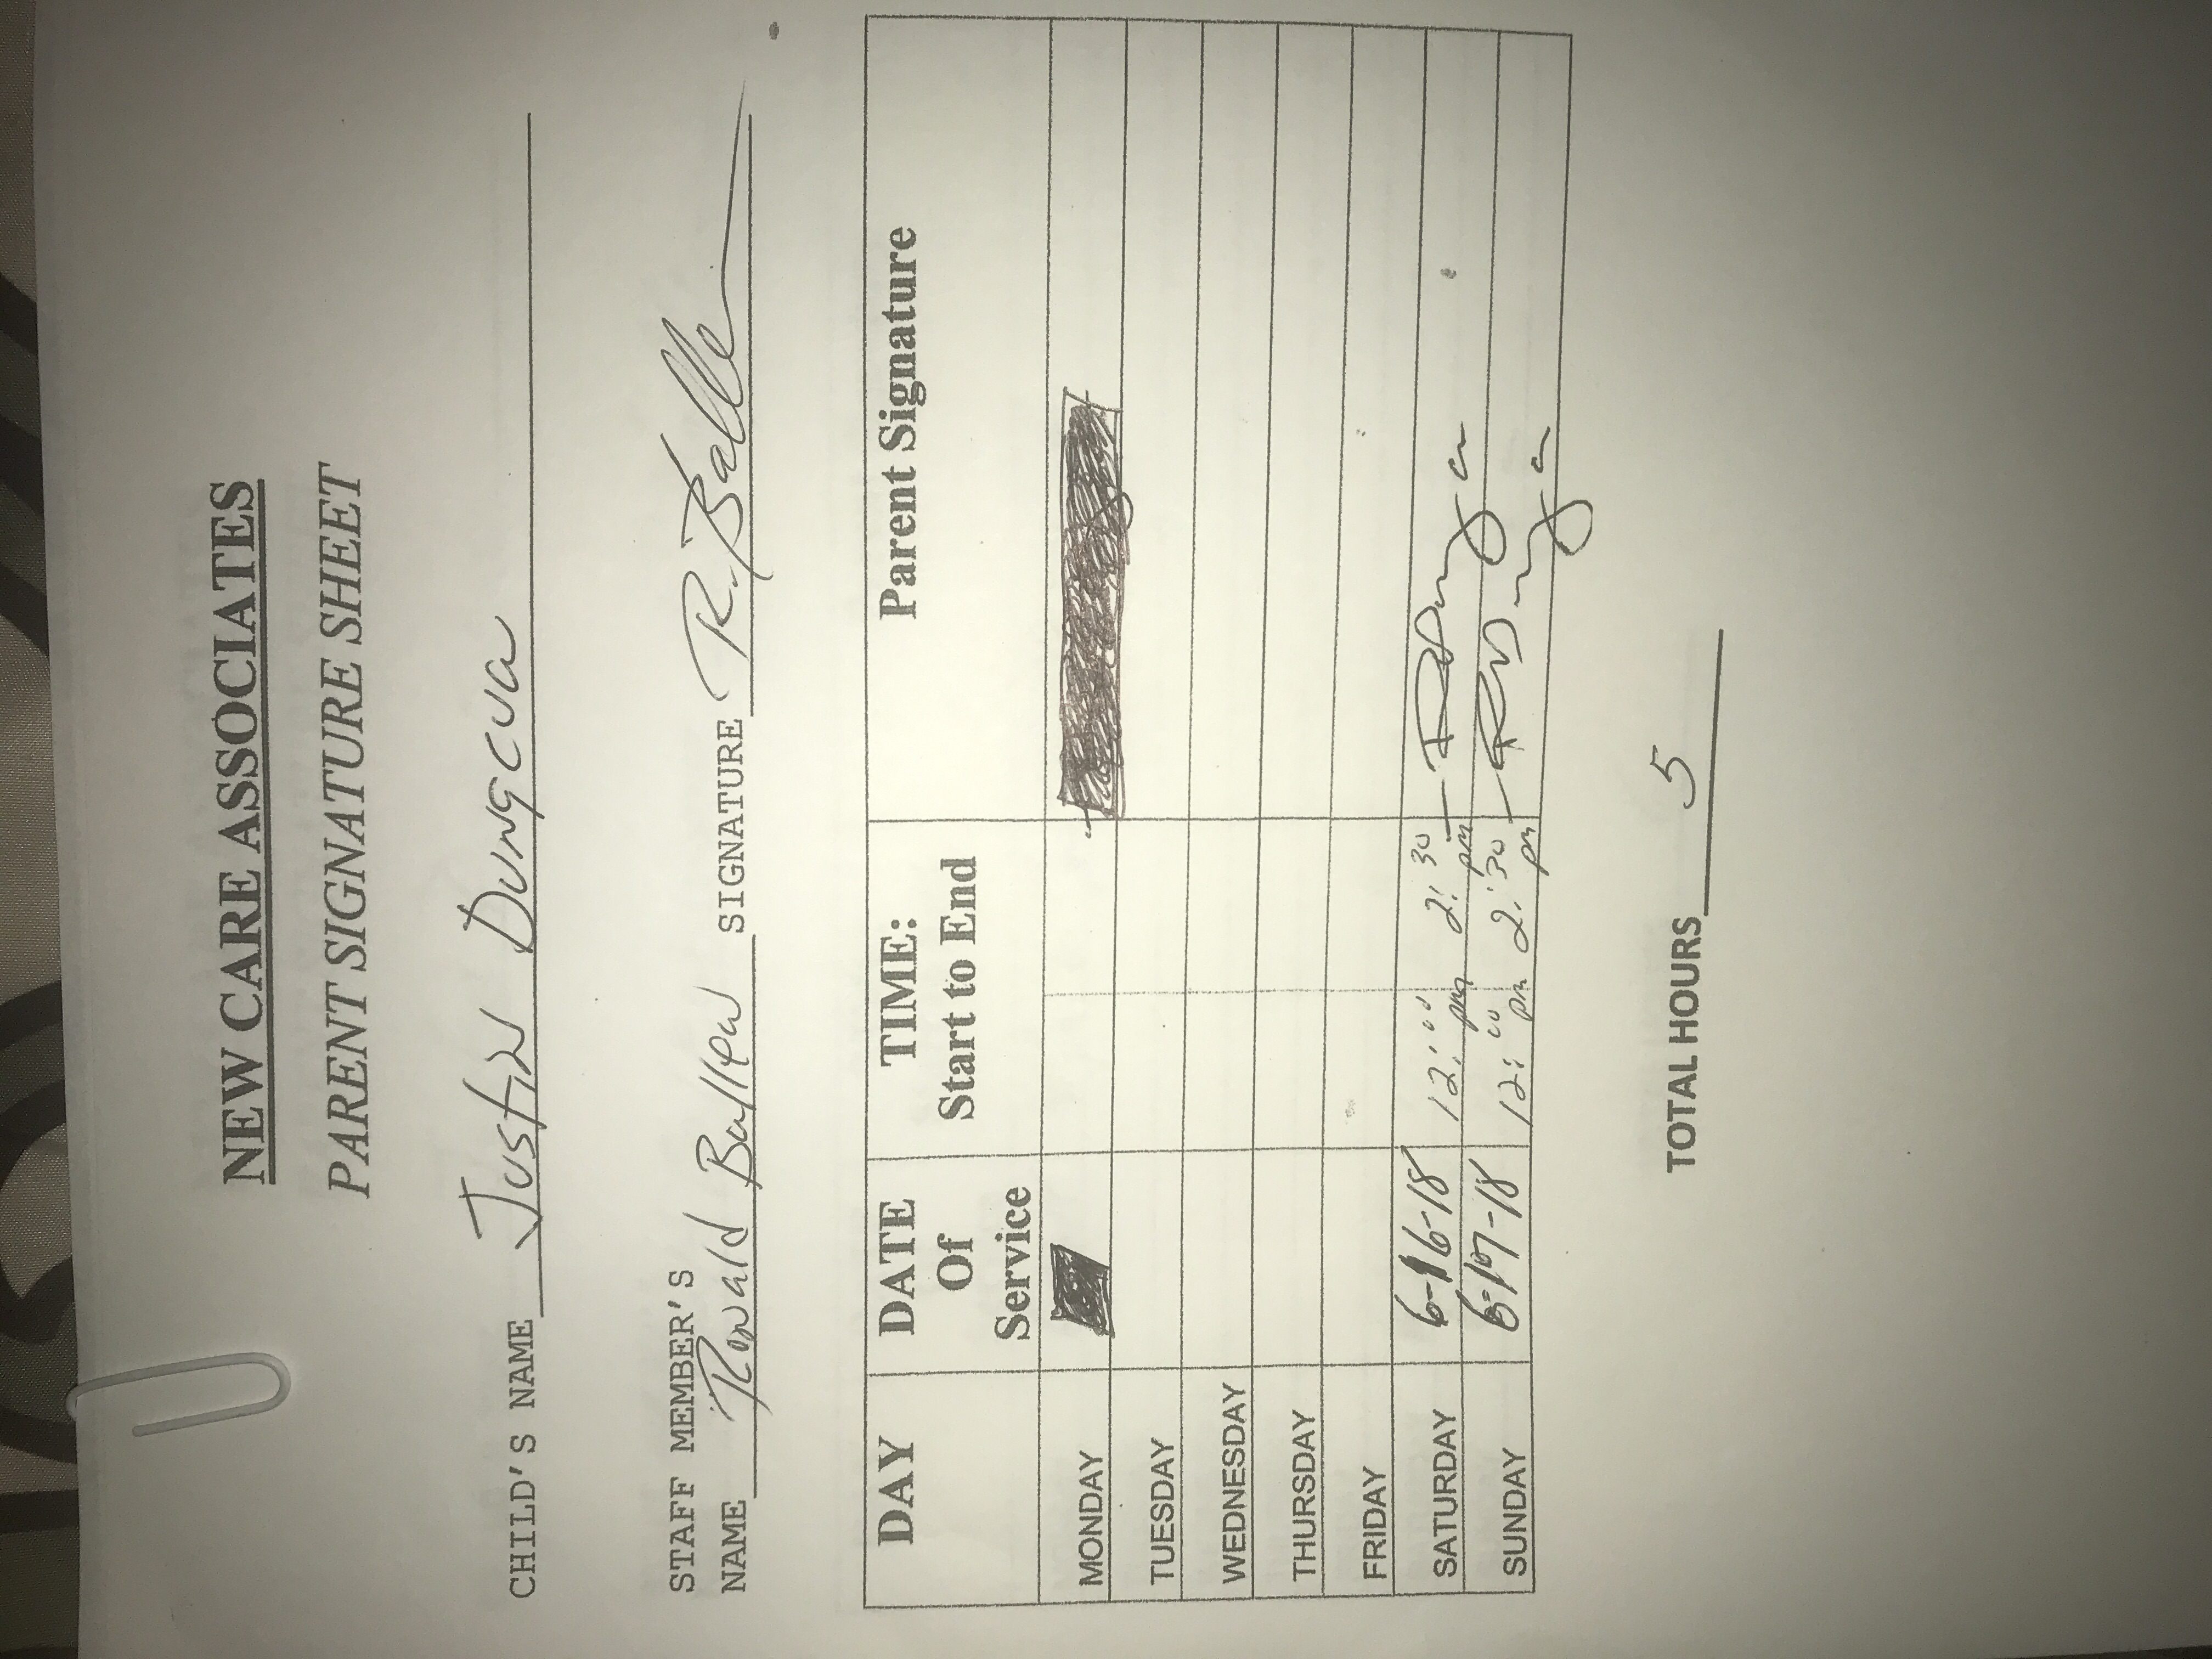 NEW CARE ASSOCIATES
PARENT SIGNATURE SHEET
CHILD'S NAME Justin Dungcua
STAFF MEMBER'S
NAME Ronald Ballew SIGNATURE R. Balle
DAY DATE Of Service TIME: Start to End Parent Signature
MONDAY
TUESDAY
WEDNESDAY
THURSDAY
FRIDAY
SATURDAY 6-16-18 12:00 pm 2:30 pm
SUNDAY 6-17-18 12:00 pm 2:30 pm
TOTAL HOURS 5